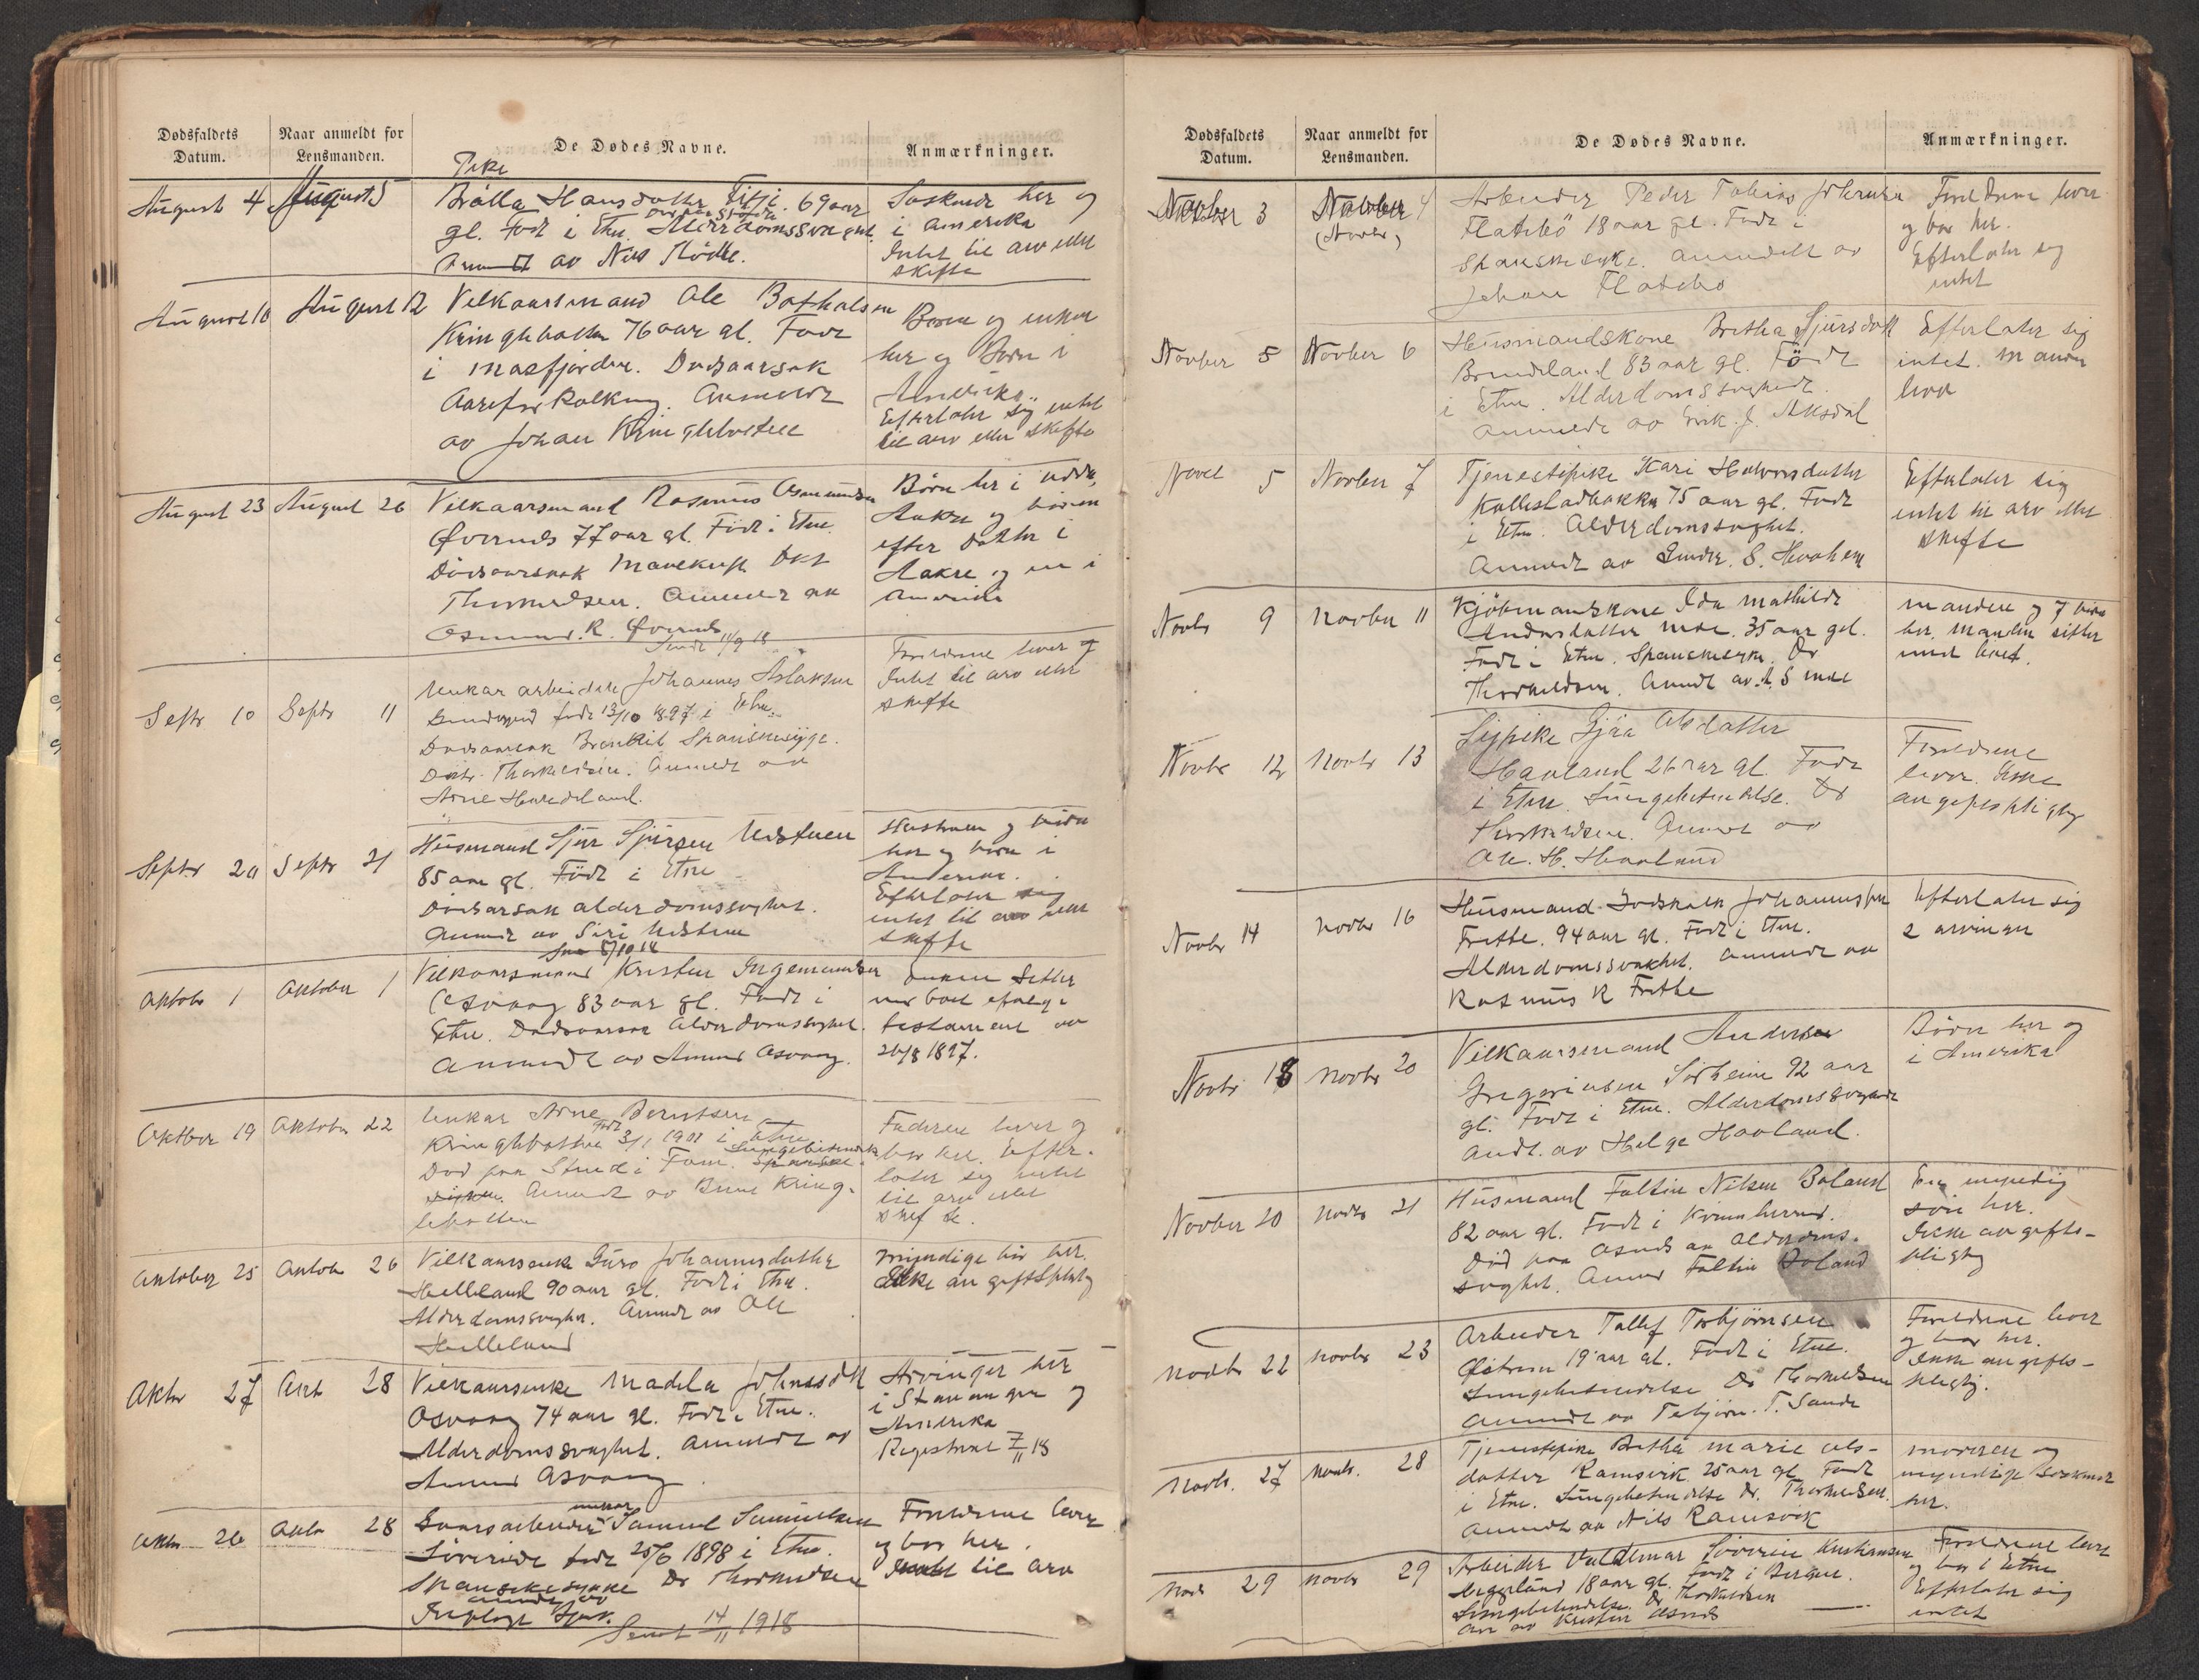 Dødsfaldets Datum.
Naar anmeldt for Lensmanden.
De Dødes Navne.
Anmærkninger.
August 4
August 5
Pike
Hansdatter 69 aar
gl. Født i Etne. Alderdomssvaghet
av Nils
Søskende her og
i Amerika
Intet til arv eller
skifte
August 10
August 12
Vilkaarsmand Ole
Kringlebotten 76 aar gl. Født
i Masfjorden. Dødsaarsak
Aareforkalkning. Anmeldt
av Johan Kringlebotten
Børn og enken
her og Børn i
Amerika.
Efterlater sig intet
til arv eller skifte
August 23
August 26
Vilkaarsmand Rasmus Osmundsen
Øvernes 77 aar gl. Født i Etne.
Dødsaarsak Mavekræft Dkt
Thorkeldsen. Anmeldt av
Osmund. R. Øvernes
Sendt 11/9 18
Børn her i
og
efter datter i
og en i
Amerika
Septr 10
Septr 11
Unkar arbeider Johannes Aslaksen
født 13/10 1897 i Etne.
Dødsaarsak Bronkit Spanskesyge.
Doktr. Thorkeldsen. Anmeldt av
Arne
Forældrene lever og
Intet til arv eller
skifte
Septr 20
Septr 21
Husmand Sjur Sjursen
85 aar gl. Født i Etne
Dødsarsak alderdomssvaghet.
Anmeldt av Siri
8/10 18
Hustruen og børn
her og børn i
Amerika.
Efterlater sig
intet til arv eller
skifte
Oktobr 1
Oktober 1
Vilkaarsmand Kristen Ingemundsen
Osvaag 83 aar gl. Født i
Etne. Dødsaarsak Alderdomssvaghet.
Anmeldt av Amund Osvaag.
Enken sitter
med boet ifølge
testament av
26/8 1897.
Oktbor 19
Oktobr 22
Unkar Arne Berntsen
Kringlebotten født 3/1 1901 i Etne
Lungebetændelse
Død paa Stend i Fane. Spanske-
syken. Anmeldt av Bernt Kring-
lebotten
Faderen lever og
bor her. Efter-
later sig intet
til arv eller
skifte.
Oktober 25
Oktob 26
Vilkaarsenke Guro Johannesdatter
Helleland 90 aar gl. Født i Etne.
Alderdomssvaghet. Anmeldt av Ole
Helleland
myndige her.
Ikke avgiftspligtig
Oktbr 27
Okt 28
Vilkaarsenke Madela Johnsdtr
Osvaag 74 aar gl. Født i Etne.
Alderdomssvaghet. Anmeldt av
Amund Osvaag
Arvinger her
i Stavanger og
Amerika
Registreret 7/11 18
Oktbr 26
Oktbr 28
unkar
Gaardsarbeider Samuel Samuelsen
født 25/6 1898 i Etne.
Spanskesyke Dr Thorkeldsen
anmeldt av
Sendt 14/11 1918
Forældrene lever
og bor her.
Intet til arv
Dødsfaldets Datum.
Naar anmeldt for Lensmanden.
De Dødes Navne.
Anmærkninger.
November 3
November 4
(Novbr)
Arbeider Peder Tobias Johansen
Flatebø 18 aar gl. Født i
Spanskesyke. Anmeldt av
Johan Flatebø
Forældrene lever
og bor her.
Efterlater sig
intet
Novber 5
Novber 6
Husmandskone Bretha Sjursdatr
83 aar gl. Født
i Etne. Alderdomssvaghet.
Anmeldt av Erik. J. Aksdal
Efterlater sig
intet. Manden
lever
Novbr 5
Novber 7
Tjenestepike Kari Halvorsdatter
Kallestadbakken 75 aar gl. Født
i Etne. Alderdomssvaghet.
Anmeldt av
Efterlater sig
intet til arv eller
skifte
Novbr 9
Novber 11
Kjøbmandskone Ida Mathilde
Andersdatter Moe. 35 aar gl.
Født i Etne. Spanskesyke. Dr
Thorkeldsen. Anmeldt av A. S Moe
Manden og 7 børn
her. Manden sitter
med boet.
Novbr 12
Novbr 13
Olsdatter
Haaland 26 aar gl. Født
i Etne. Lungebetændelse. Dr
Thorkeldsen. Anmeldt av
Ole. H. Haaland
Forældrene
lever. Ikke
avgiftspligtig
Novbr 14
Novbr 16
Husmand Godskalk Johannessen
Frette. 94 aar gl. Født i Etne.
Alderdomssvaghet. Anmeldt av
Rasmus R Frette
Efterlater sig
2 arvinger
Novbr 18
Novbr 20
Vilkaarsmand Anders
Gregoriussen Sørheim 92 aar
gl. Født i Etne. Alderdomssvaghet
Andt. av Helge Haaland.
Børn her og
i Amerika
Novber 20
Novbr 21
Husmand Faltin Nilsen Boland
82 aar gl. Født i Kvinnherred.
Død paa Osnes av Alderdoms-
svaghet. Anmeldt Faltin Boland
En myndig
søn her.
Ikke avgifts-
pligtig
Novbr 22
Novbr 23
Arbeider Tollef Torbjørnsen
Østrem 19 aar gl. Født i Etne.
Lungebetændelse Dr Thorkeldsen
Anmeldt av Tobjørn. T. Sande
Forældrene lever
og bor her.
Ikke avgifts-
pligtig.
Novbr. 27
Novbr. 28
Tjenestepike Bretha Marie Ols-
datter Ramsvik 25 aar gl. Født
i Etne. Lungebetændelse Dr. Thorkeldsen.
Anmeldt av Nils Ramsvik
Moderen og
myndige Søskende
her.
Novbr 29
Novbr 29
Arbeider Valdemar Severin Kristiansen
18 aar gl. Født i Bergen.
Lungebetændelse. Dr Thorkeldsen
An av Kristen Osnes
Forældrene lever
og bor i Etne
Efterlater sig
intet